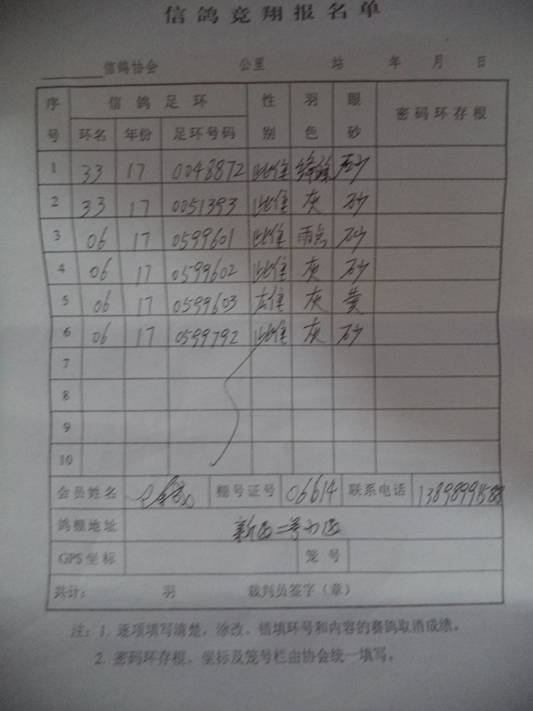 信鸽竞翔报名单
信鸽协会 公里 站 年 月 日
序号 信鸽足环 性别 羽色 眼砂 密码环存根
环名 年份 足环号码
1 33 17 0048872 雌 绛 砂
2 33 17 0051393 雌 灰 砂
3 06 17 0599601 雌 雨点 砂
4 06 17 0599602 雌 灰 砂
5 06 17 0599603 雄 灰 黄
6 06 17 0599792 雌 灰 砂
7
8
9
10
会员姓名 棚号证号 06614 联系电话
鸽棚地址 新区二号小区
GPS坐标 笼号
共计: 羽 裁判员签字(章)
注: 1. 逐项填写清楚,涂改、错填环号和内容的赛鸽取消成绩。
2. 密码环存根、坐标及笼号栏由协会统一填写。